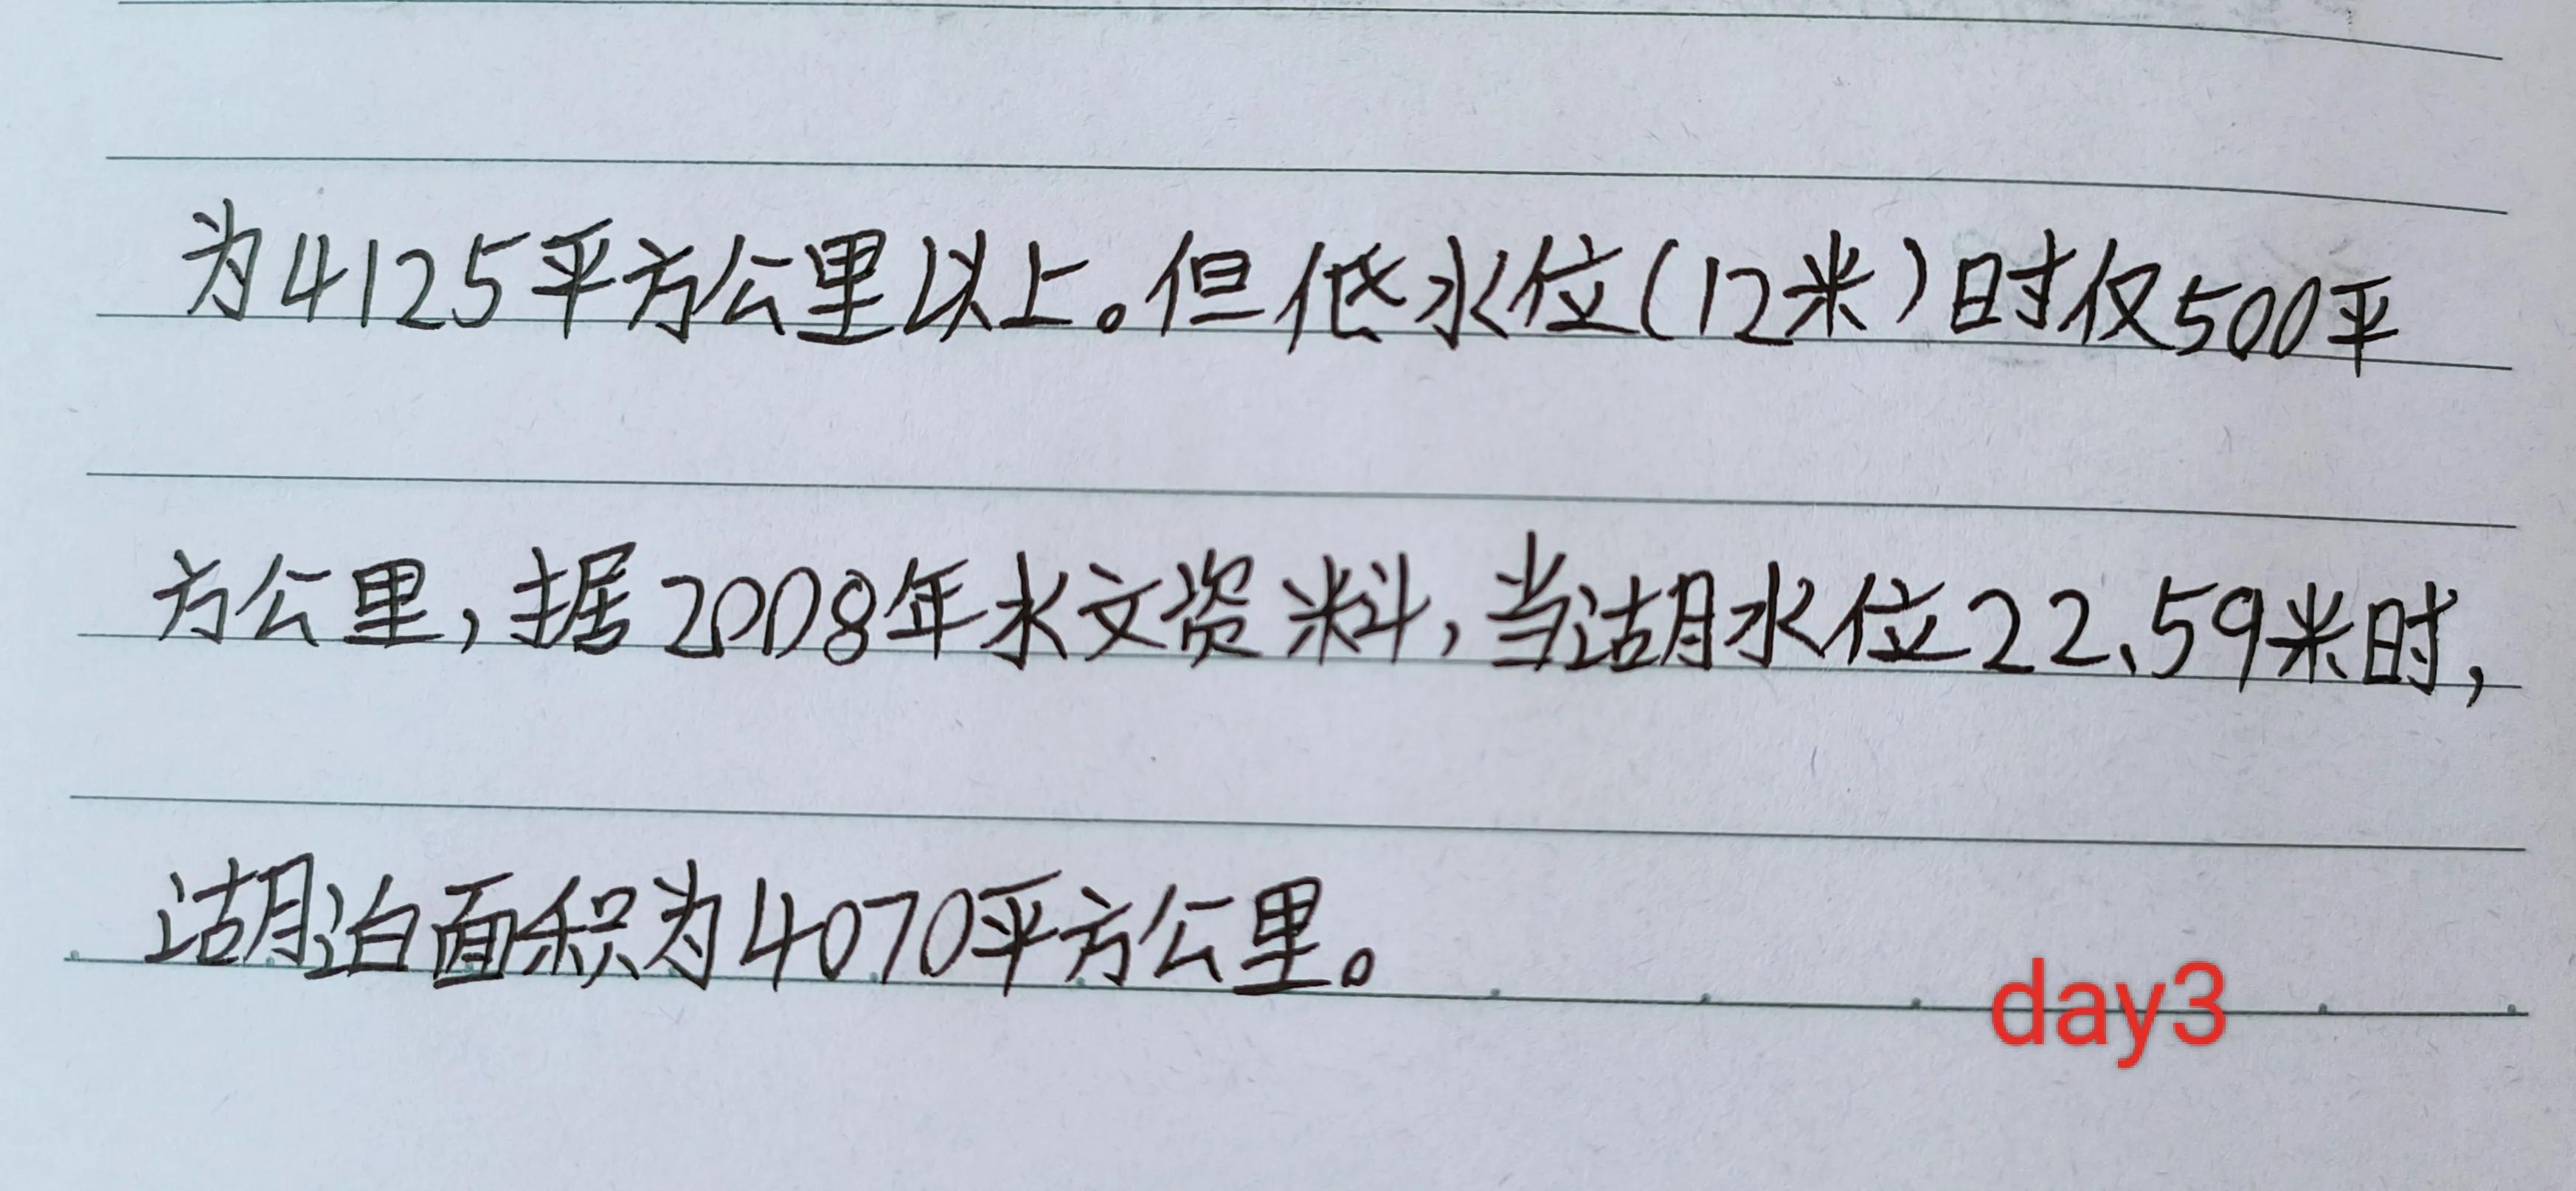 为4125平方公里以上。但低水位(12米)时仅500平
方公里,据2008年水文资料,当湖水位22、59米时,
湖泊面积为4070平方公里。
day3